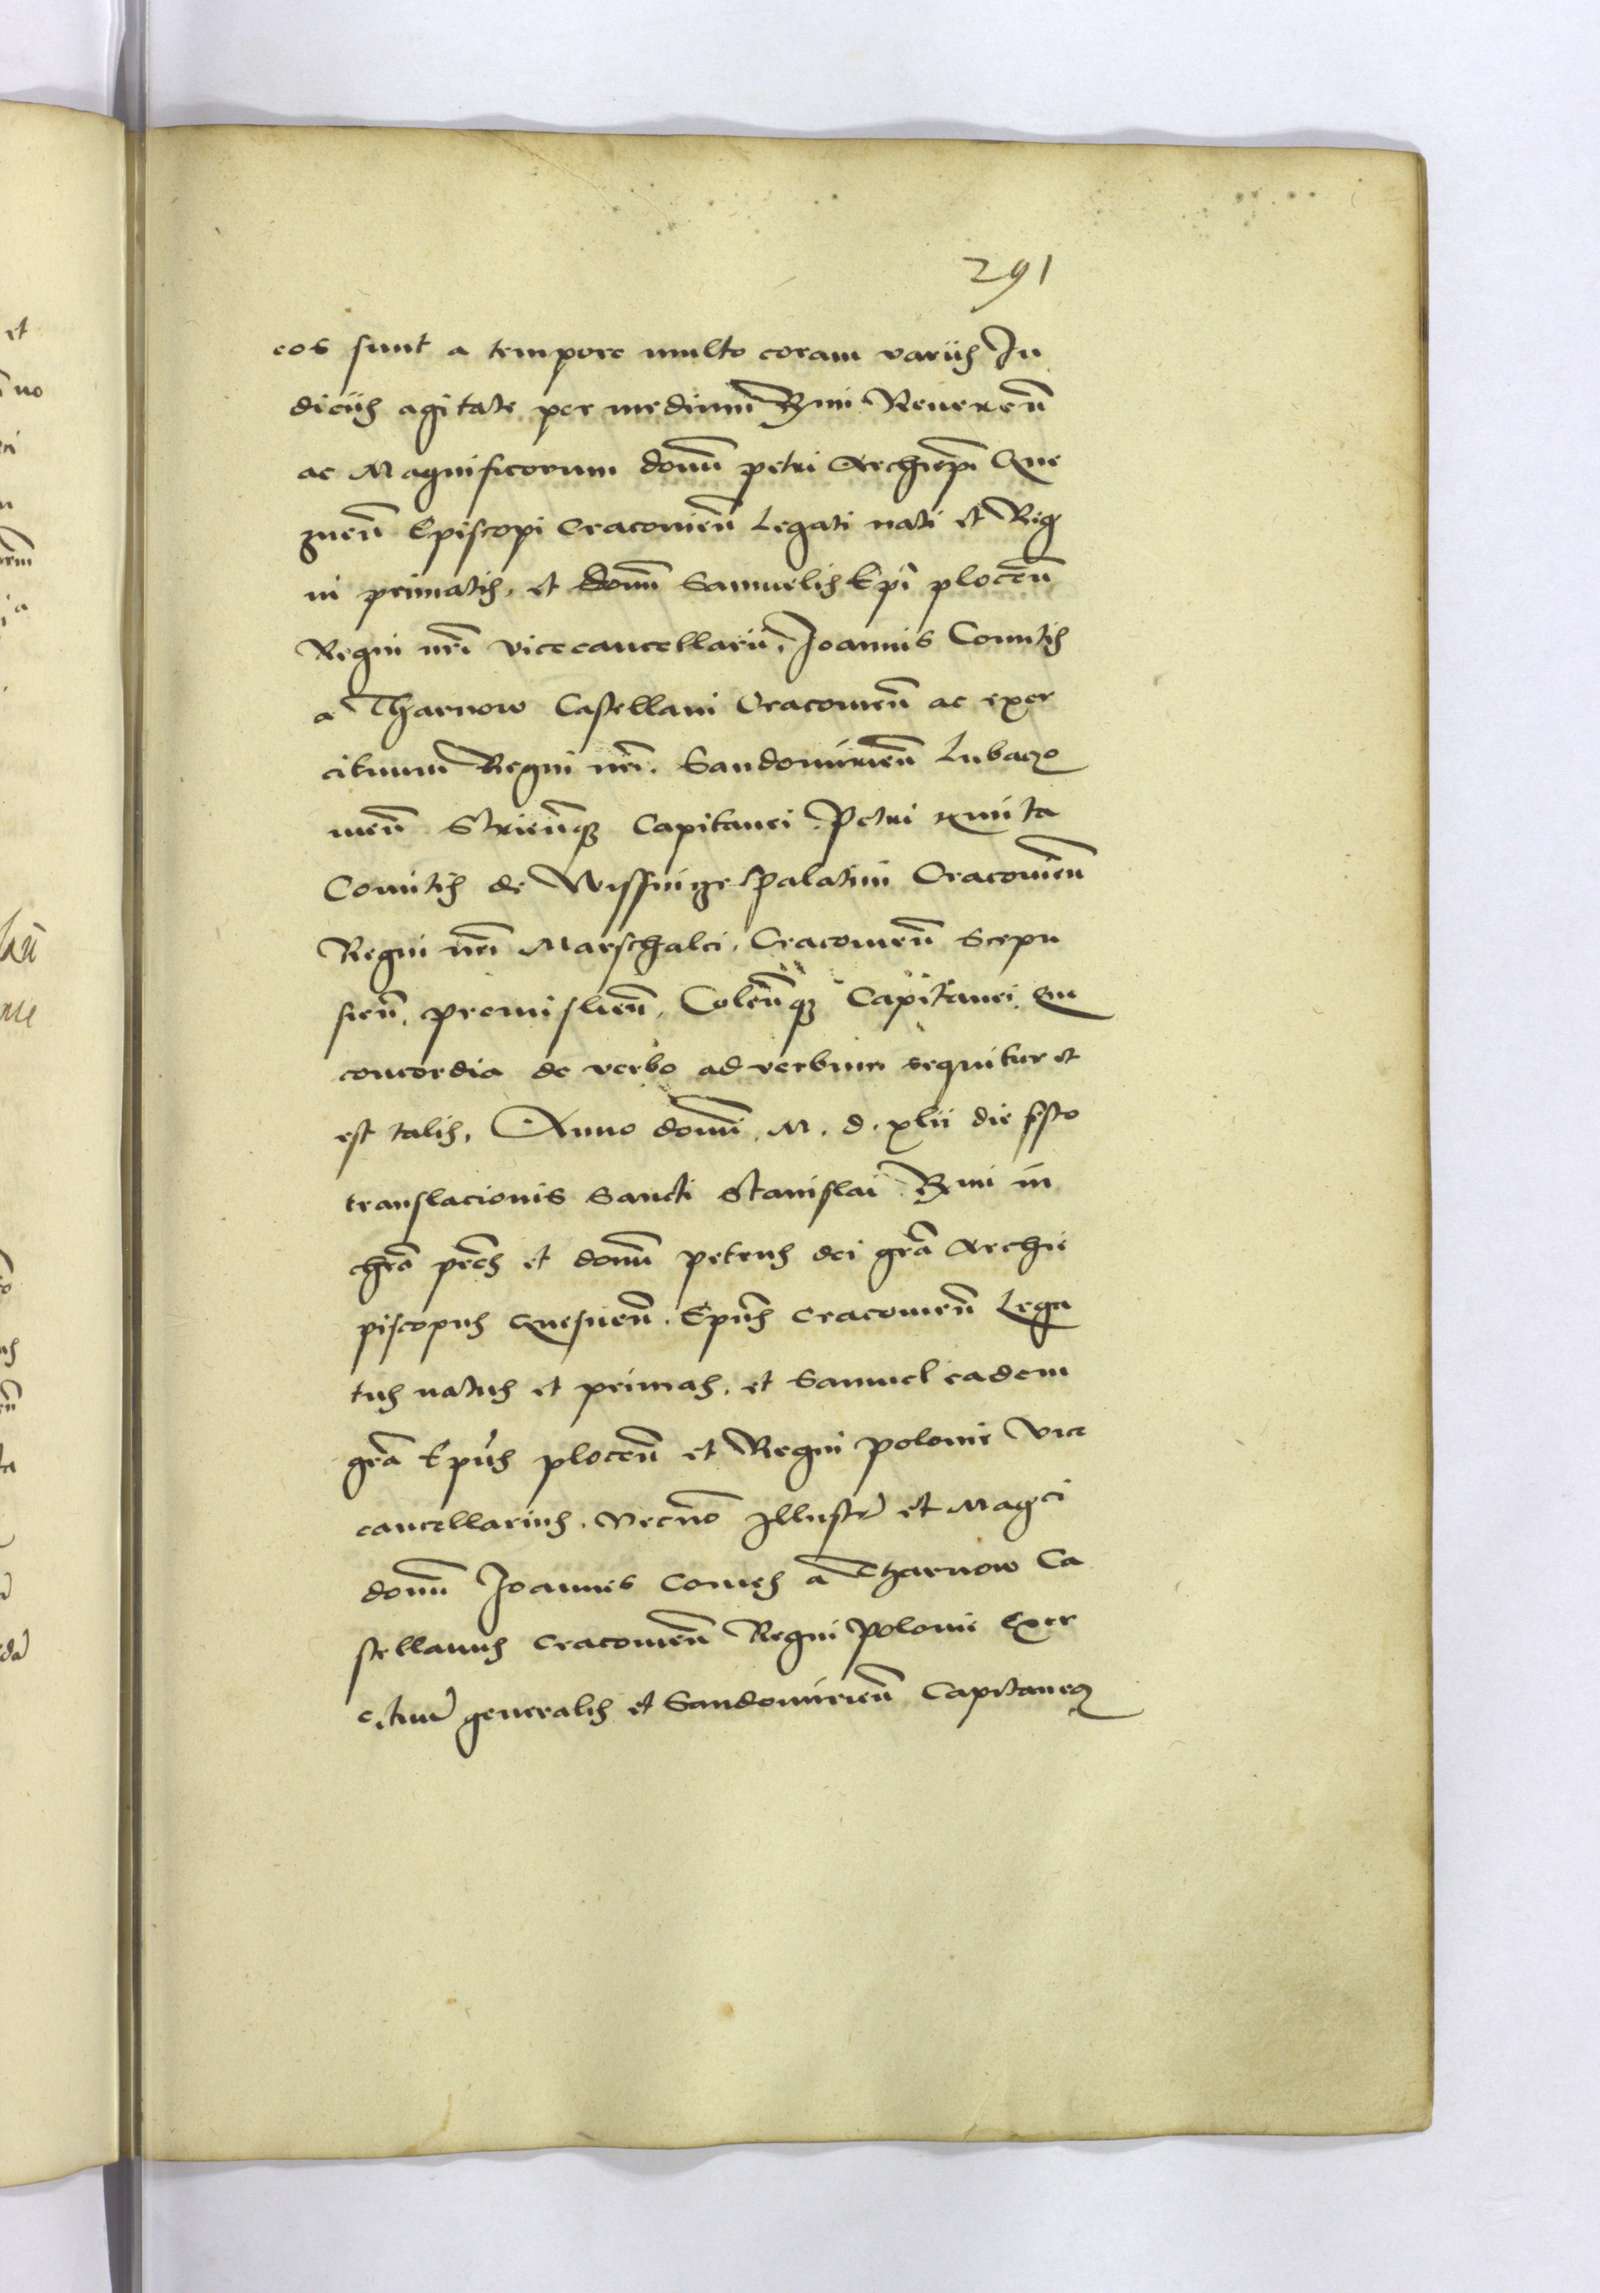 291
eos sunt a tempore multo coram variis Iu
diciis agitate per medium Rmi Reueren̄
ac Magnificorum domn̄ petri Archiepī Gne
znen̄ Episcopi Cracovien̄ Legati nati et Reg
ni primatis, et domn̄ Samuelis Epī plocen̄
Regni nrī vicecancellarii, Joannis Comitis
a Tharnow Castellani Cracovien̄ ac exer
cituum Regni nrī. Sandomirien̄ Lubaczo
vien̄ Strien̄q Capitanei. Petri kmita
Comitis de Wissnicze palatini Cracovien̄
Regni nrī Marschalci. Cracovien̄ Scepu
sien̄, premislien̄, Colen̄q Capitanei. Que
concordia de verbo ad verbum sequitur et
est talis. Anno domī. M. d. xlii die festo
translacionis Sancti Stanislai Rmi in
chrō prēs et domn̄ petrus dei grā Archie
piscopus Gnesnen̄. Epūs Cracovien̄ Lega
tus natus et primas, et Samuel eadem
grā Epūs plocen̄ et Regni polonie Vice
cancellarius. Necno Illustr et Magci
domn̄ Joannes Comes a Tharnow Ca
stellanus Cracovien̄ Regni Polonie Exer
cituu generalis et Sandomirien̄ Capitaneq